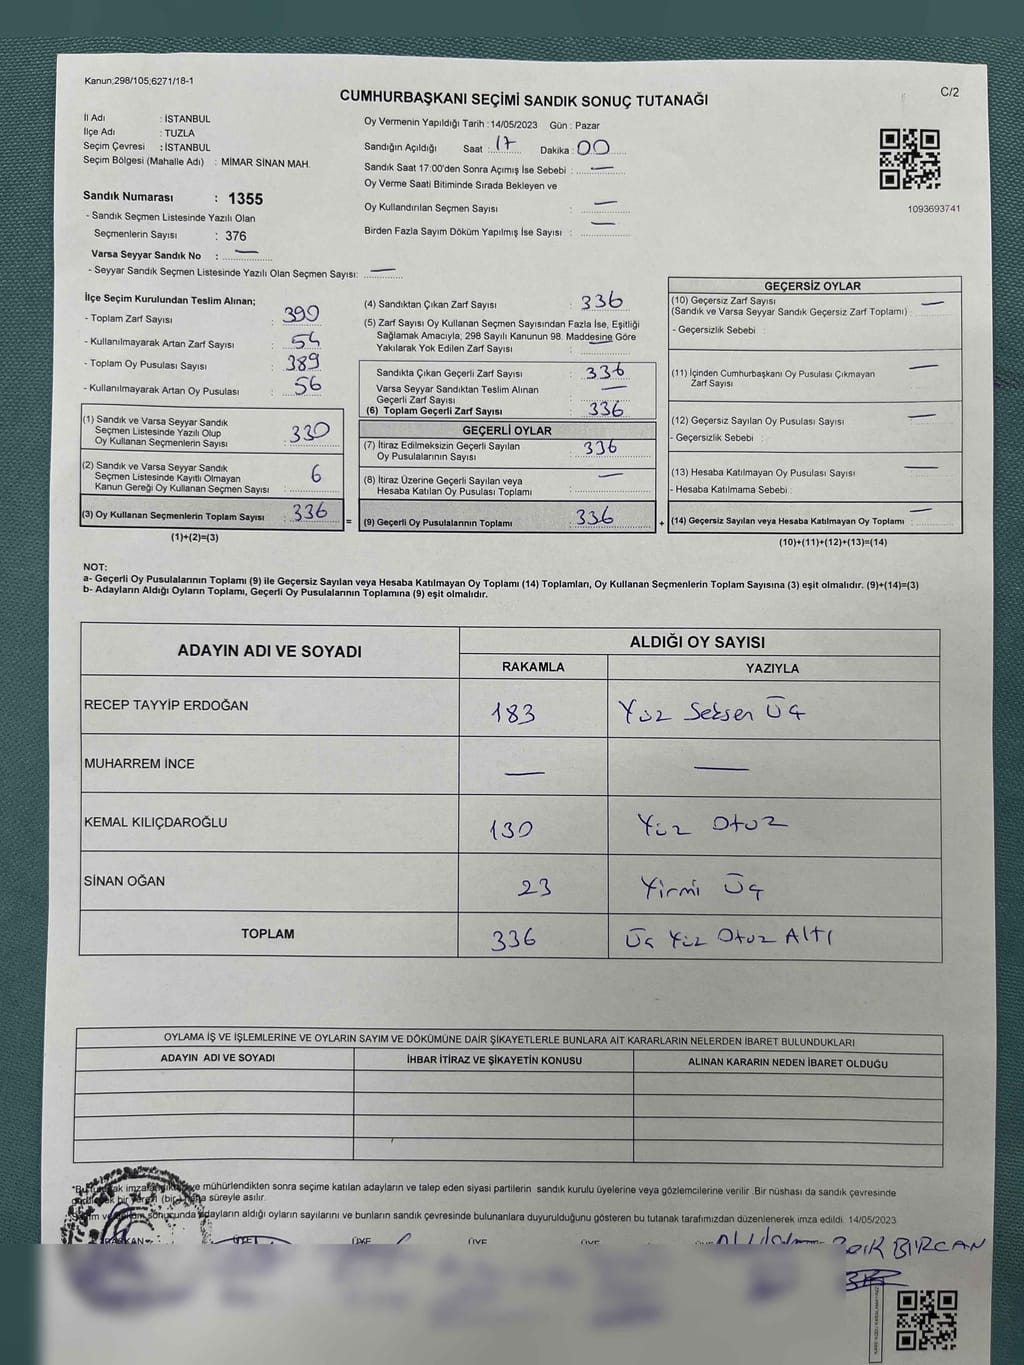 Kanun;298/105;6271/18-1
C/2
CUMHURBAŞKANI SEÇİMİ SANDIK SONUÇ TUTANAĞI
İl Adı : İSTANBUL
İlçe Adı : TUZLA
Seçim Çevresi : İSTANBUL
Seçim Bölgesi (Mahalle Adı) : MİMAR SİNAN MAH.
Sandık Numarası : 1355
- Sandık Seçmen Listesinde Yazılı Olan
Seçmenlerin Sayısı : 376
Varsa Seyyar Sandık No : —
- Seyyar Sandık Seçmen Listesinde Yazılı Olan Seçmen Sayısı: —
Oy Vermenin Yapıldığı Tarih : 14/05/2023 Gün : Pazar
Sandığın Açıldığı Saat : 17 Dakika : 00
Sandık Saat 17:00'den Sonra Açımış İse Sebebi : —
Oy Verme Saati Bitiminde Sırada Bekleyen ve
Oy Kullandırılan Seçmen Sayısı : —
Birden Fazla Sayım Döküm Yapılmış İse Sayısı : —
1093693741
İlçe Seçim Kurulundan Teslim Alınan;
- Toplam Zarf Sayısı : 390
- Kullanılmayarak Artan Zarf Sayısı : 54
- Toplam Oy Pusulası Sayısı : 389
- Kullanılmayarak Artan Oy Pusulası : 56
(1) Sandık ve Varsa Seyyar Sandık
Seçmen Listesinde Yazılı Olup
Oy Kullanan Seçmenlerin Sayısı : 330
(2) Sandık ve Varsa Seyyar Sandık
Seçmen Listesinde Kayıtlı Olmayan
Kanun Gereği Oy Kullanan Seçmen Sayısı : 6
(3) Oy Kullanan Seçmenlerin Toplam Sayısı : 336
(1)+(2)=(3)
=
(4) Sandıktan Çıkan Zarf Sayısı : 336
(5) Zarf Sayısı Oy Kullanan Seçmen Sayısından Fazla İse, Eşitliği
Sağlamak Amacıyla, 298 Sayılı Kanunun 98. Maddesine Göre
Yakılarak Yok Edilen Zarf Sayısı : —
Sandıkta Çıkan Geçerli Zarf Sayısı : 336
Varsa Seyyar Sandıktan Teslim Alınan
Geçerli Zarf Sayısı : —
(6) Toplam Geçerli Zarf Sayısı : 336
GEÇERLİ OYLAR
(7) İtiraz Edilmeksizin Geçerli Sayılan
Oy Pusulalarının Sayısı : 336
(8) İtiraz Üzerine Geçerli Sayılan veya
Hesaba Katılan Oy Pusulası Toplamı : —
(9) Geçerli Oy Pusulalarının Toplamı : 336
+
GEÇERSİZ OYLAR
(10) Geçersiz Zarf Sayısı
(Sandık ve Varsa Seyyar Sandık Geçersiz Zarf Toplamı) : —
- Geçersizlik Sebebi :
(11) İçinden Cumhurbaşkanı Oy Pusulası Çıkmayan
Zarf Sayısı : —
(12) Geçersiz Sayılan Oy Pusulası Sayısı : —
- Geçersizlik Sebebi :
(13) Hesaba Katılmayan Oy Pusulası Sayısı : —
- Hesaba Katılmama Sebebi :
(14) Geçersiz Sayılan veya Hesaba Katılmayan Oy Toplamı : —
(10)+(11)+(12)+(13)=(14)
NOT:
a- Geçerli Oy Pusulalarının Toplamı (9) ile Geçersiz Sayılan veya Hesaba Katılmayan Oy Toplamı (14) Toplamları, Oy Kullanan Seçmenlerin Toplam Sayısına (3) eşit olmalıdır. (9)+(14)=(3)
b- Adayların Aldığı Oyların Toplamı, Geçerli Oy Pusulalarının Toplamına (9) eşit olmalıdır.
ADAYIN ADI VE SOYADI
ALDIĞI OY SAYISI
RAKAMLA YAZIYLA
RECEP TAYYİP ERDOĞAN 183 Yüz Seksen Üç
MUHARREM İNCE — —
KEMAL KILIÇDAROĞLU 130 Yüz Otuz
SİNAN OĞAN 23 Yirmi Üç
TOPLAM 336 Üç Yüz Otuz Altı
OYLAMA İŞ VE İŞLEMLERİNE VE OYLARIN SAYIM VE DÖKÜMÜNE DAİR ŞİKAYETLERLE BUNLARA AİT KARARLARIN NELERDEN İBARET BULUNDUKLARI
ADAYIN ADI VE SOYADI İHBAR İTİRAZ VE ŞİKAYETİN KONUSU ALINAN KARARIN NEDEN İBARET OLDUĞU
mühürlendikten sonra seçime katılan adayların ve talep eden siyasi partilerin sandık kurulu üyelerine veya gözlemcilerine verilir .Bir nüshası da sandık çevresinde
süreyle asılır.
sonucunda adayların aldığı oyların sayılarını ve bunların sandık çevresinde bulunanlara duyurulduğunu gösteren bu tutanak tarafımızdan düzenlenerek imza edildi. 14/05/2023
ÜYE ÜYE ÜYE ÜYE
BİRCAN